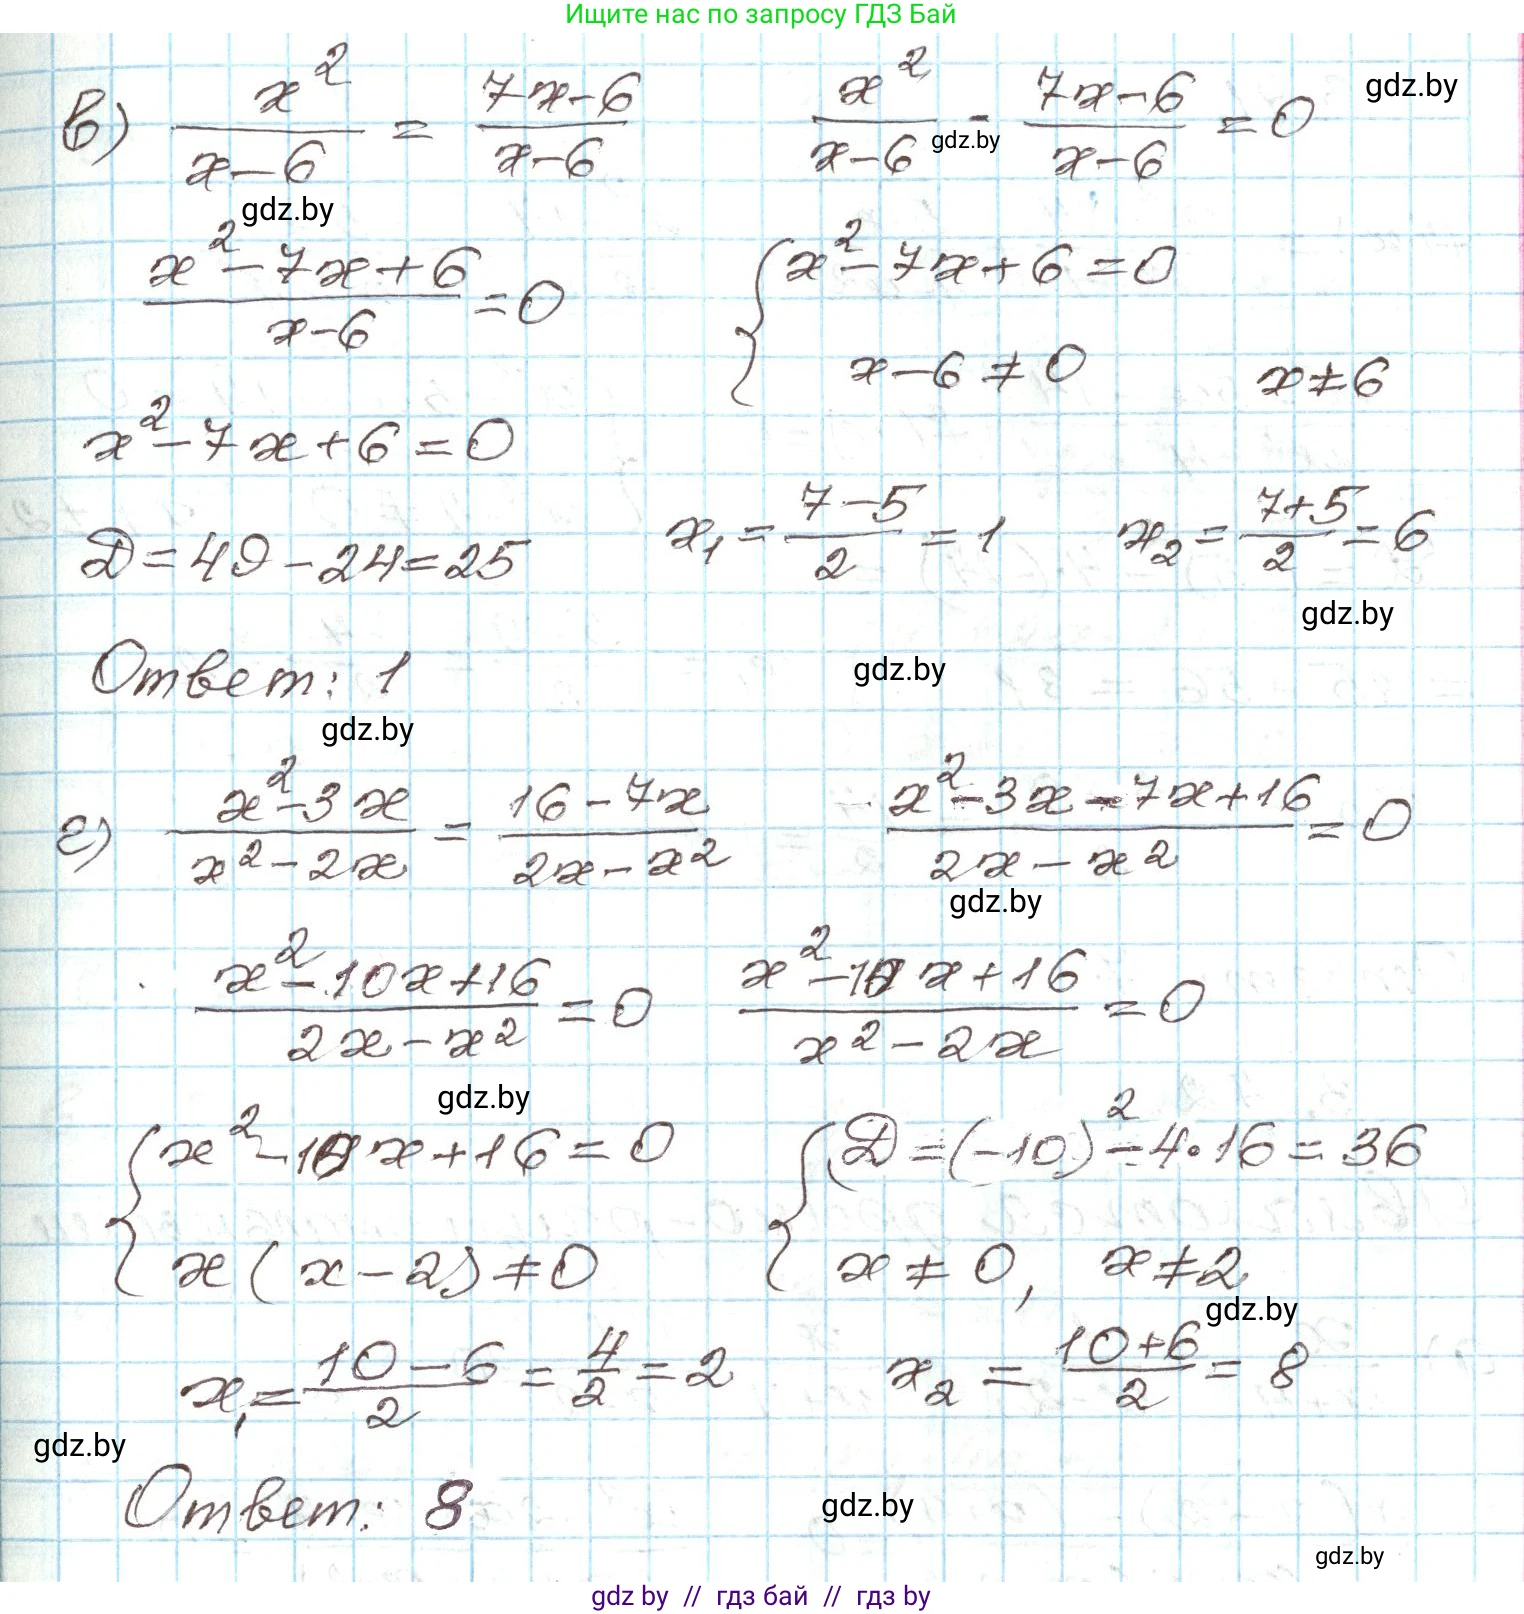 Ищите нас по запросу ГДЗ Бай
в) x²/(x-6) = (7x-6)/(x-6)   x²/(x-6) - (7x-6)/(x-6) = 0
gdz.by
gdz.by
gdz.by
(x²-7x+6)/(x-6) = 0   { x²-7x+6=0
x-6≠0   x≠6
x²-7x+6=0
D=49-24=25   x₁=(7-5)/2=1   x₂=(7+5)/2=6
gdz.by
Ответ: 1
gdz.by
gdz.by
г) (x²-3x)/(x²-2x) = (16-7x)/(2x-x²)   (x²-3x-7x+16)/(2x-x²) = 0
gdz.by
(x²-10x+16)/(2x-x²) = 0   (x²-10x+16)/(x²-2x) = 0
gdz.by
{ x²-10x+16=0   { D=(-10)²-4·16=36
x(x-2)≠0   x≠0, x≠2
gdz.by
x₁=(10-6)/2=4/2=2   x₂=(10+6)/2=8
gdz.by
Ответ: 8
gdz.by
gdz.by
gdz by // гдз бай // гдз by